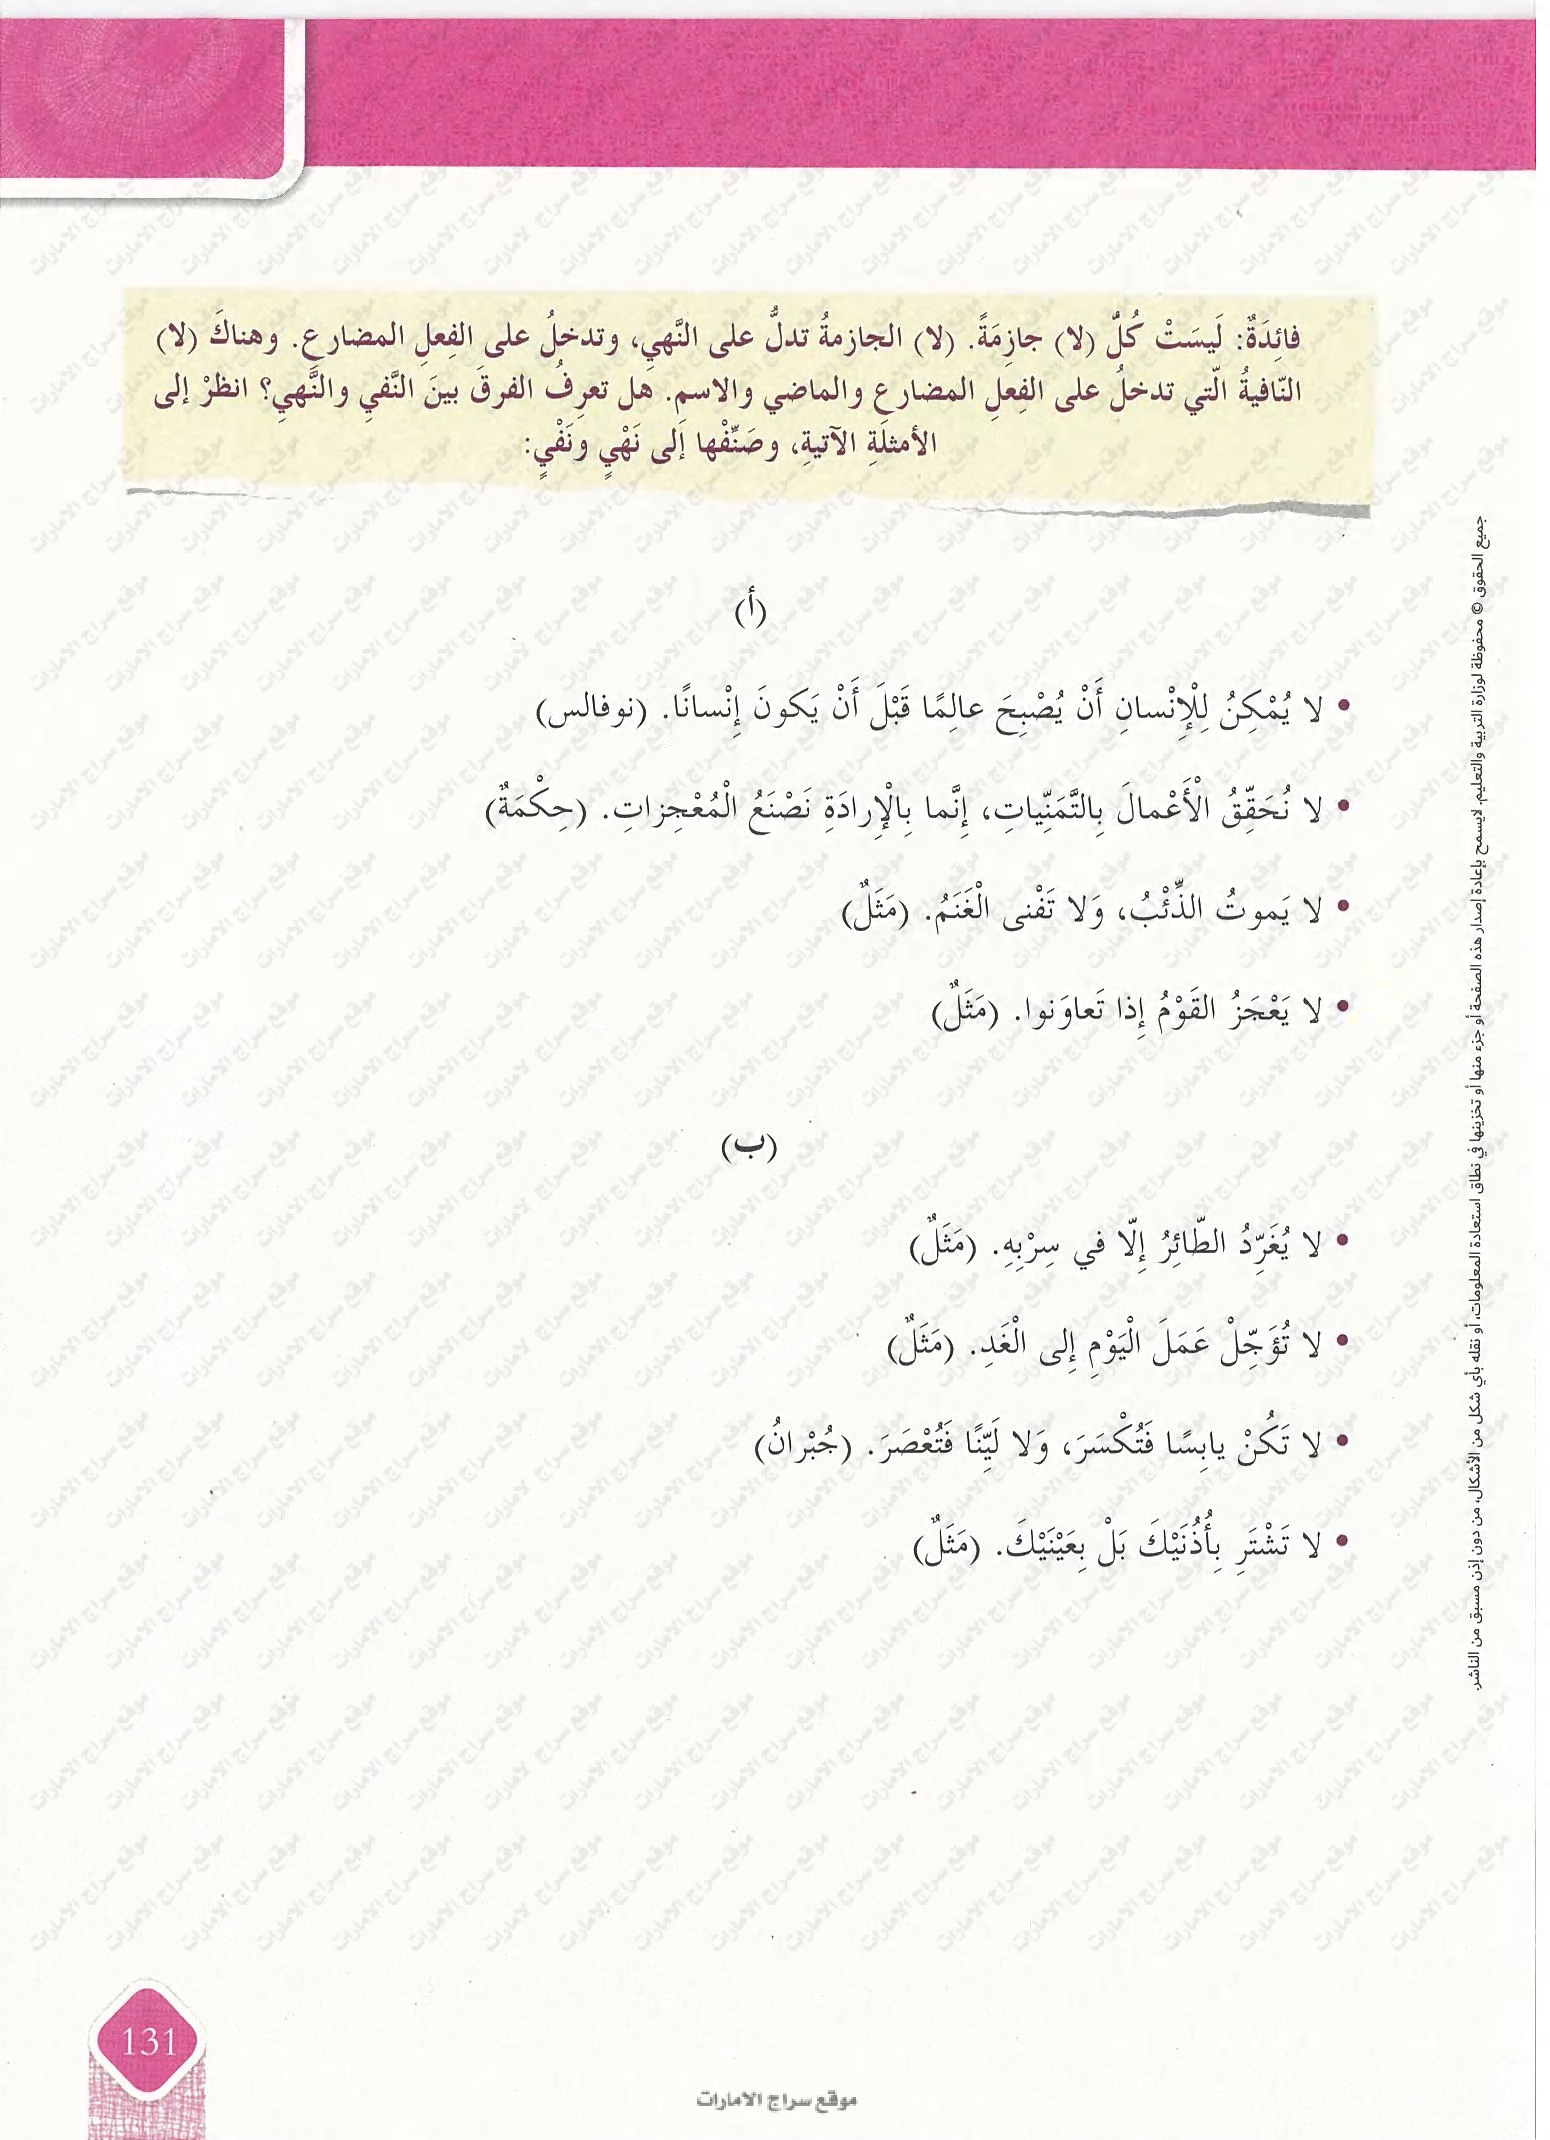 فائِدَةٌ: لَيسَتْ كُلُّ (لا) جازِمَةً. (لا) الجازمةُ تدلُّ على النَّهيِ، وتدخلُ على الفِعلِ المضارعِ. وهناكَ (لا)
النّافيةُ الّتي تدخلُ على الفِعلِ المضارعِ والماضي والاسمِ. هل تعرِفُ الفرقَ بينَ النَّفيِ والنَّهيِ؟ انظرْ إلى
الأمثلَةِ الآتيةِ، وصَنِّفْها إلى نَهْيٍ ونَفْيٍ:
(أ)
• لا يُمْكِنُ لِلْإِنْسانِ أَنْ يُصْبِحَ عالِمًا قَبْلَ أَنْ يَكونَ إِنْسانًا. (نوفالس)
• لا نُحَقِّقُ الْأَعْمالَ بِالتَّمَنِّياتِ، إِنَّما بِالْإِرادَةِ نَصْنَعُ الْمُعْجِزاتِ. (حِكْمَةٌ)
• لا يَموتُ الذِّئْبُ، وَلا تَفْنى الْغَنَمُ. (مَثَلٌ)
• لا يَعْجَزُ القَوْمُ إِذا تَعاوَنوا. (مَثَلٌ)
(ب)
• لا يُغَرِّدُ الطّائِرُ إِلّا في سِرْبِهِ. (مَثَلٌ)
• لا تُؤَجِّلْ عَمَلَ الْيَوْمِ إِلى الْغَدِ. (مَثَلٌ)
• لا تَكُنْ يابِسًا فَتُكْسَرَ، وَلا لَيِّنًا فَتُعْصَرَ. (جُبْرانُ)
• لا تَشْتَرِ بِأُذُنَيْكَ بَلْ بِعَيْنَيْكَ. (مَثَلٌ)
جميع الحقوق © محفوظة لوزارة التربية والتعليم. لايسمح بإعادة إصدار هذه الصفحة أو جزء منها أو تخزينها في نطاق استعادة المعلومات، أو نقله بأي شكل من الأشكال، من دون إذن مسبق من الناشر.
131
موقع سراج الامارات